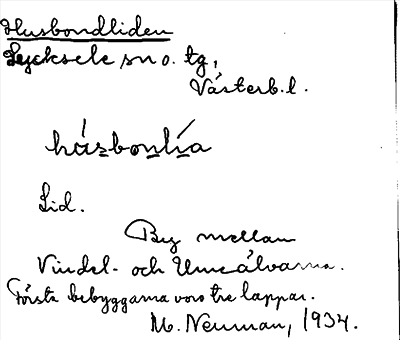 Husbondliden
Lycksele sn o. tg,
Västerb. l.
húsbonlía
Lid.
By mellan
Vindel- och Umeälvarna.
Första bebyggarna voro tre lappar.
M. Neuman, 1934.